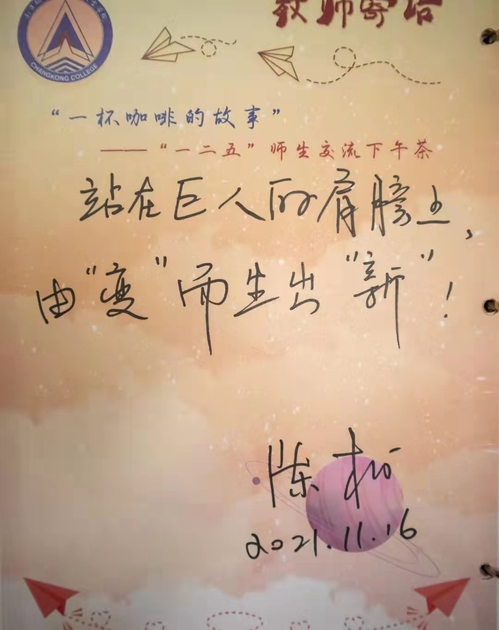 教师寄语
CHANGKONG COLLEGE
“一杯咖啡的故事”
——“一二五”师生交流下午茶
站在巨人的肩膀上，
由“变”而生出“新”！
陈
2021.11.16